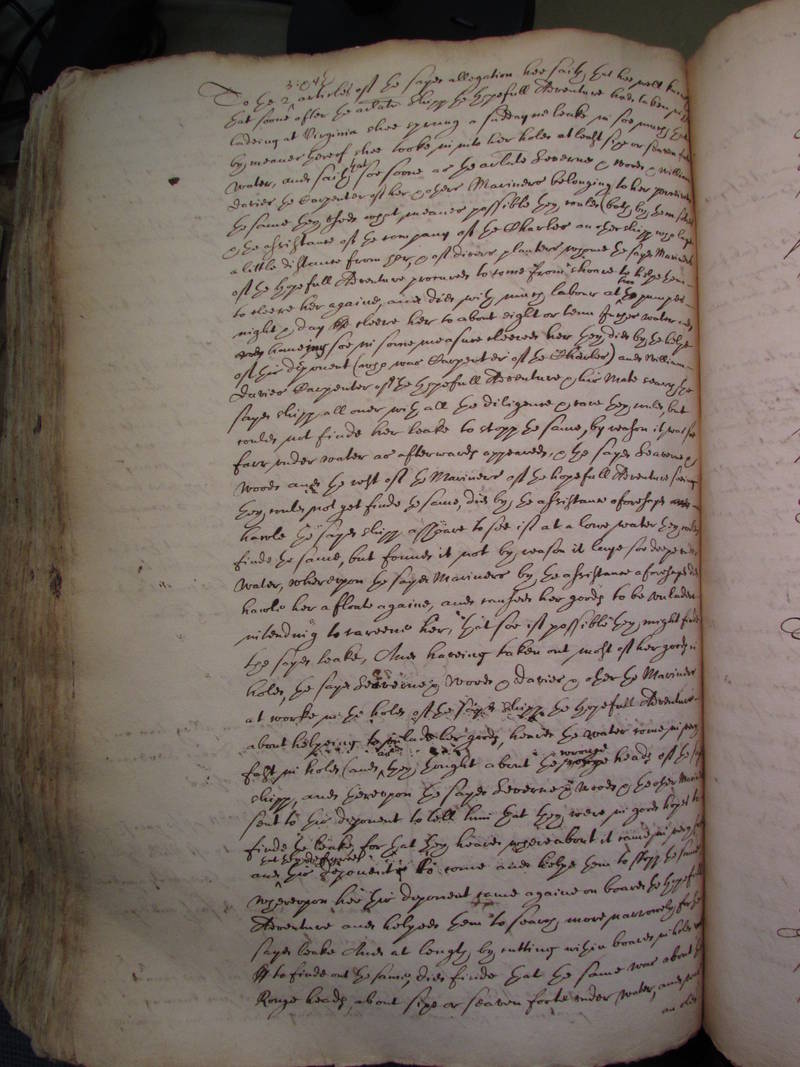 3: 4
To the 2, articles of the sayd allegation hee saith that hee well knoweth
that soone after the arlate shipp the Hopefull Adventure had taken in
ladeing at Virginia shee sprung a suddayne leake in soe much that
by meanes hereof shee tooke in into her hold at least sixe or seaven foote
water, and saith that soe soone as the arlate Severne & Woods & William
Davies the Carpenter of her & other Mariners belonging to her perceived
the same they used what meanes possible they could (both by them selves
& the assistance of the company of the Charles an other shipp who laye
a little distance from her, & of divers planters whome the sayd Mariners
of the hopefull Adventure procured to come from shoare to helpe them
to cleere her againe, and did with much labour at the pumpes
night & day cleere her to about eight or tenn inches water and
haveing soe in some measure cleered her they did by the helpe
of this deponent (who was Carpenter of the Charles) and William
Davies Carpenter of the hopefull Adventure & his Mate search the
sayd shipp all over with all the diligence & care they could, but
could not finde her leake to stopp the same, by reason it was soe
farr under water as afterwards appeared, & the sayd Severne &
Woods and the rest of the Mariners of the hopefull Adventure seeing
they could not yet finde the same, did by the assistance aforesayd
hawle the sayd shipp a shoare to see if at a lowe water they could
finde the same, but found it not by reason it laye soe deepe under
water, whereupon the sayd Mariners by the assistance aforesayd did
hawle her a floate againe, and caused her goods to be unladen
intending to careene her, that soe if possible they might finde
the sayd leake, And haveing taken out most of her goods in
hold, the sayd Severne & Woods & Davies & other the Mariners
at worke in the hold of the sayd shipp the Hopefull Adventure
about helpeing to unlade her goods, heard the water come in very
fast in hold (and as they thought about the wronge heads of the sayd
shipp, and thereupon the sayd Severne & Woods & the other Mariners
sent to this deponent to tell him that they were in good hopes to
finde the leake, for that they heard whereabout it came in very fast
and this deponent to come and helpe them to stopp the same
whereupon hee this deponent came againe on board the hopefull
Adventure and helped them to search more narrowly for the
sayd leake And at length by cutting within board in hold
to finde out the same, did finde that the same was about the
Ronge heads, about sixe or seaven foote under water, and
an old